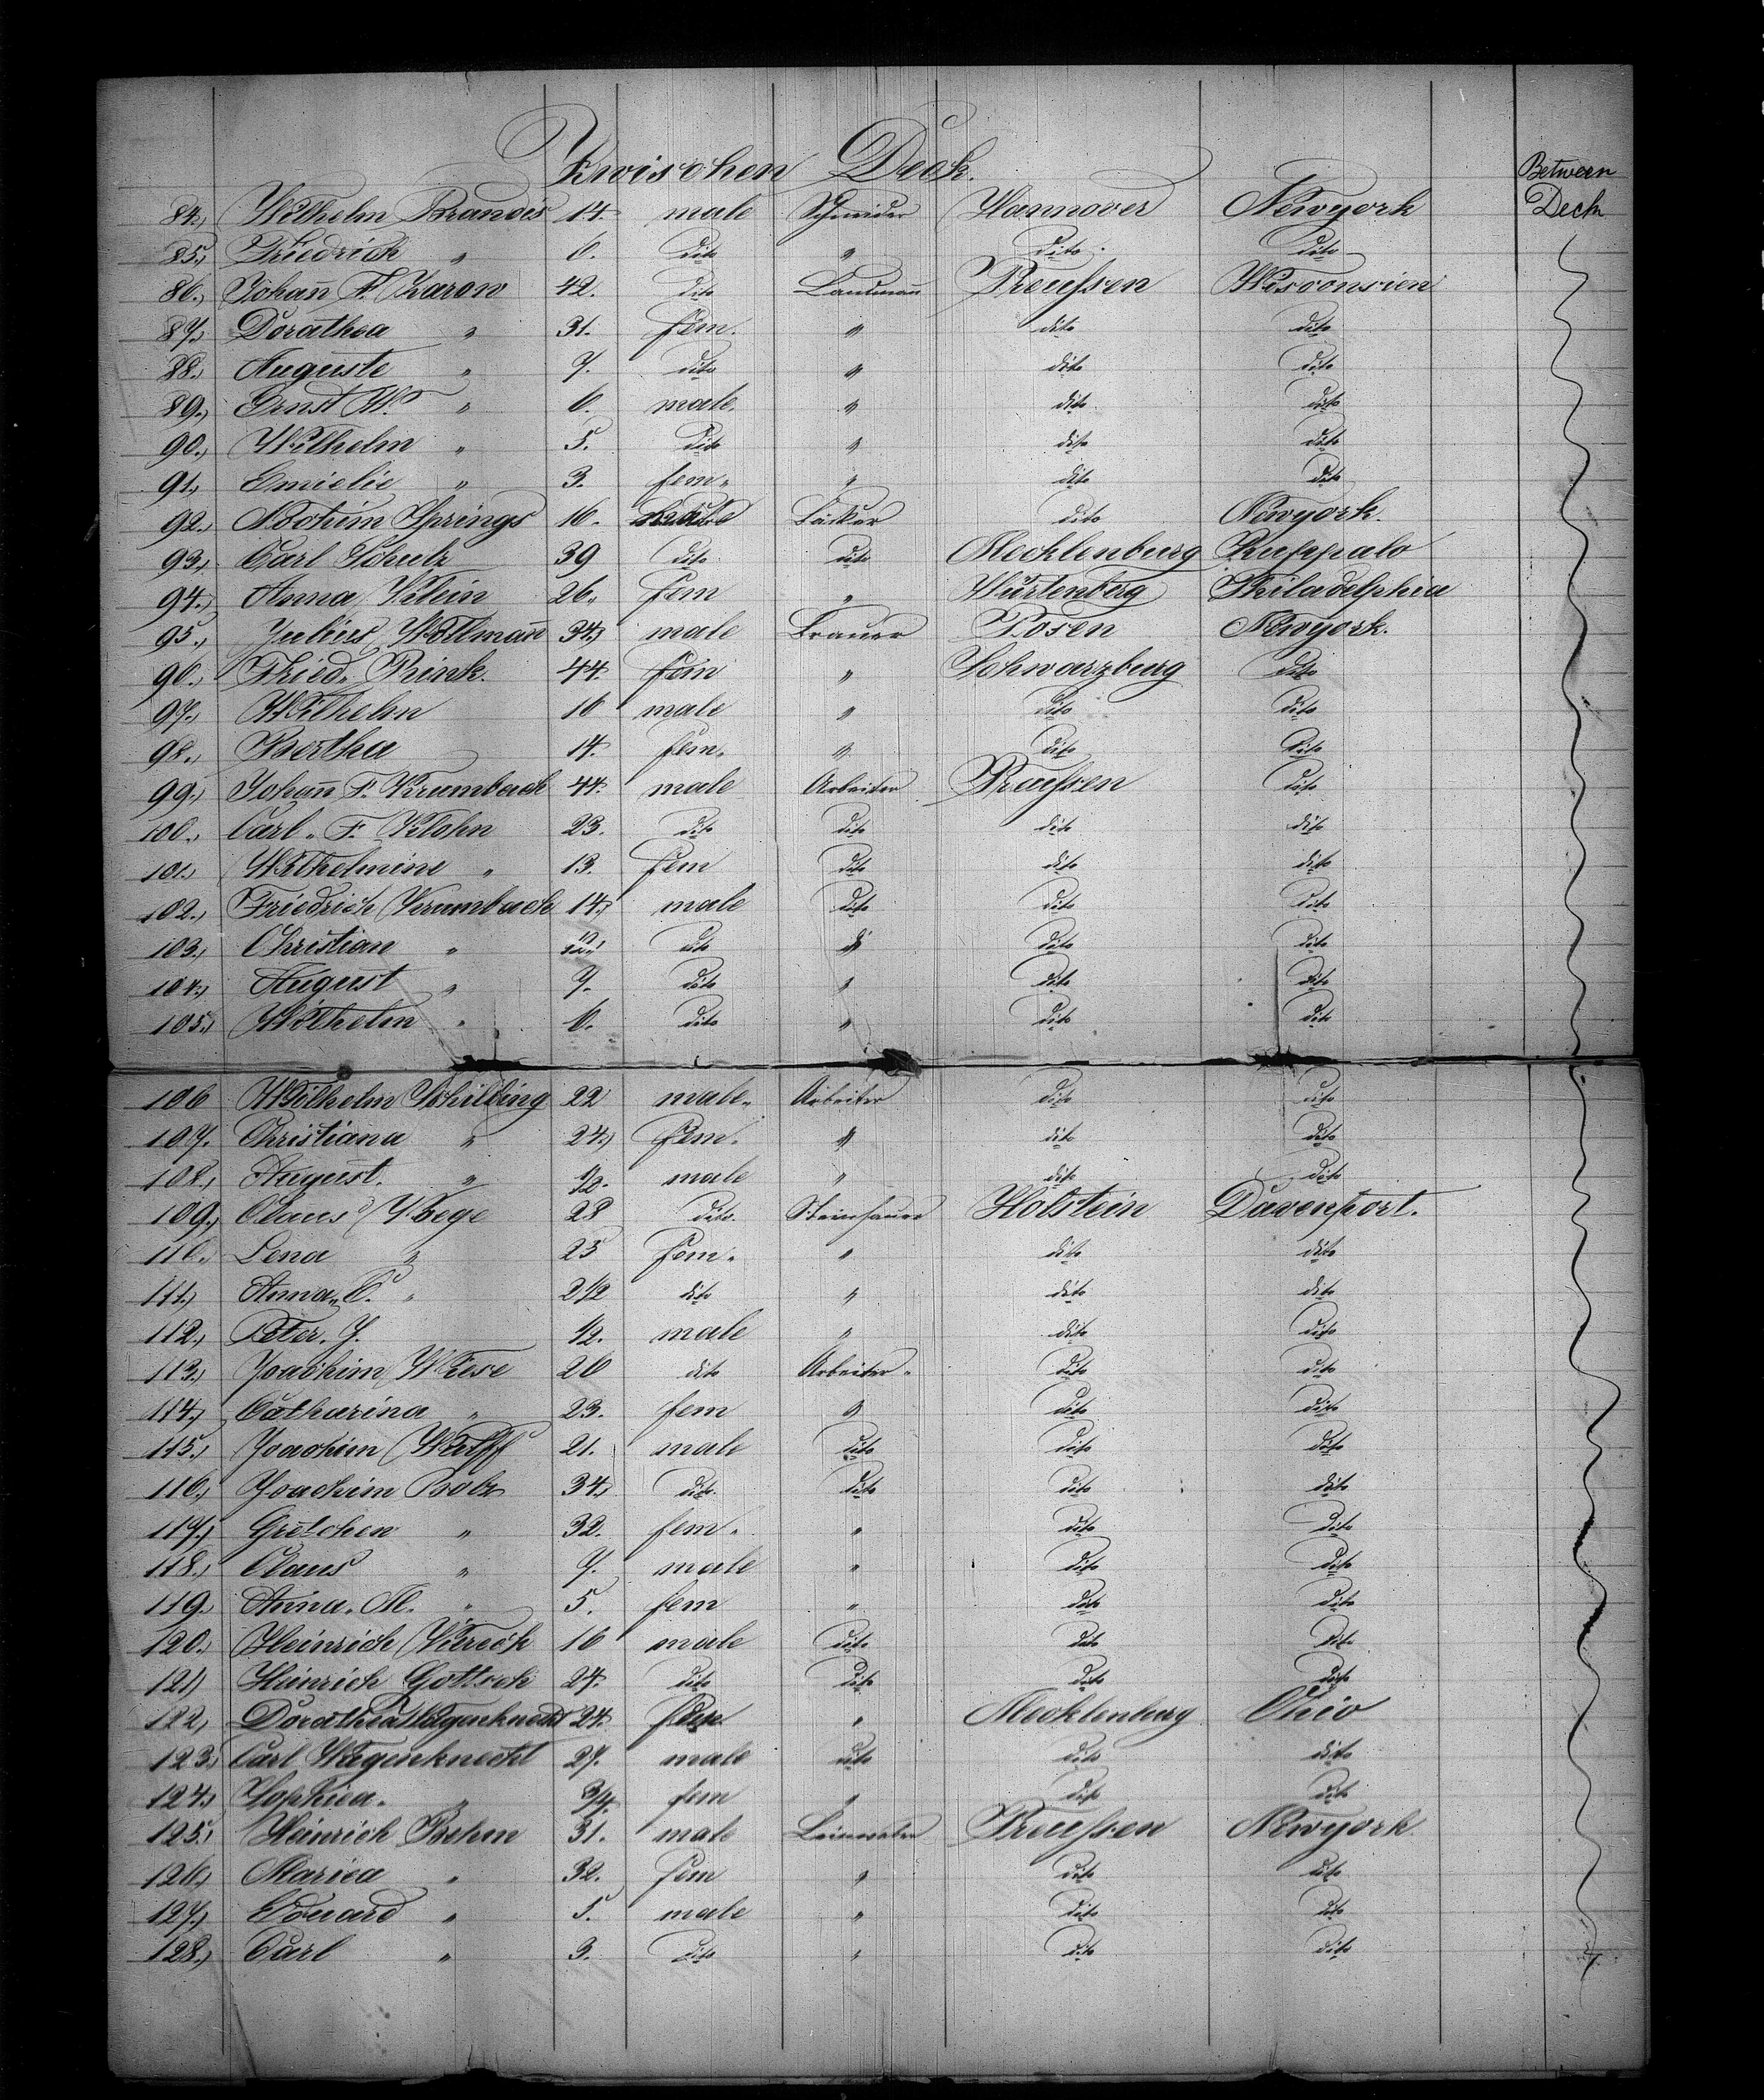 Zwischen Deck.
Between Deck
84., Wilhelm Brandes 14. male Schneider Hannover Newyork
85., Friedrich " 6. dito " dito dito
86., Johan̄ F. Karow 42. dito Landman̄ Preußen Wisconsien
87., Dorathea " 31. fem. " dito dito
88., Auguste " 7. dito " dito dito
89., Ernst W. " 6. male. " dito dito
90., Wilhelm " 5. dito " dito dito
91., Emielie " 3. fem. " dito dito
92., Springs 16. male dito Newyork.
93., Carl Schulz 39 dito dito Mecklenburg Buffalo
94., Anna Klein 26. fem " Würtenberg Philadelphia
95., Julius Wollman̄ 34., male Brauer Posen Newyork.
96., Fried. Rink. 44. fem " Schwarzburg dito
97., Wilhelm 16 male " dito dito
98., Bertha 14. fem. " dito dito
99., Johan̄ F. Krumbach 44. male Arbeiter Preußen dito
100., Carl. F. Klohn 23. dito dito dito dito
101., Wilhelmine " 13. fem dito dito dito
102., Friedrich Krumbach 14., male dito dito dito
103., Christian " dito " dito dito
104., August " 9. dito " dito dito
105., Wilhelm " 6. dito " dito dito
106 Wilhelm Schilling 22 male. Arbeiter dito dito
107. Christiana " 24., fem. " dito dito
108., August. " 1/2. male " dito dito
109., Claus Wege 28 dito. Steinhauer Holstein Davenport.
110., Lena " 25 fem. " dito dito
111., Anna. C. " 2 1/2 dito " dito dito
112., Peter. J. 1/2. male " dito dito
113., Joachim Wiese 26 dito Arbeiter. dito dito
114., Catharina " 23. fem " dito dito
115., Joachim Wulff 21. male dito dito dito
116., Joachim Bolz 34., dito. dito dito dito
117., Gretchen " 32. fem. " dito dito
118., Claus " 7. male " dito dito
119., Anna. M. " 5. fem " dito dito
120., Heinrich Vierck 16 male dito dito dito
121., Heinrich Gottsch 24. dito dito dito dito
122., Dorathea Wagenknecht 24. fem. " Mecklenburg Ohio
123., Carl Wagenknecht 27. male dito dito dito
124., Sophiea. " 3/4. fem " dito dito
125., Heinrich Brehm 31. male Preußen Newyork.
126., Mariea " 32. fem " dito dito
127., Edward " 5. male " dito dito
128., Carl " 3. dito " dito dito